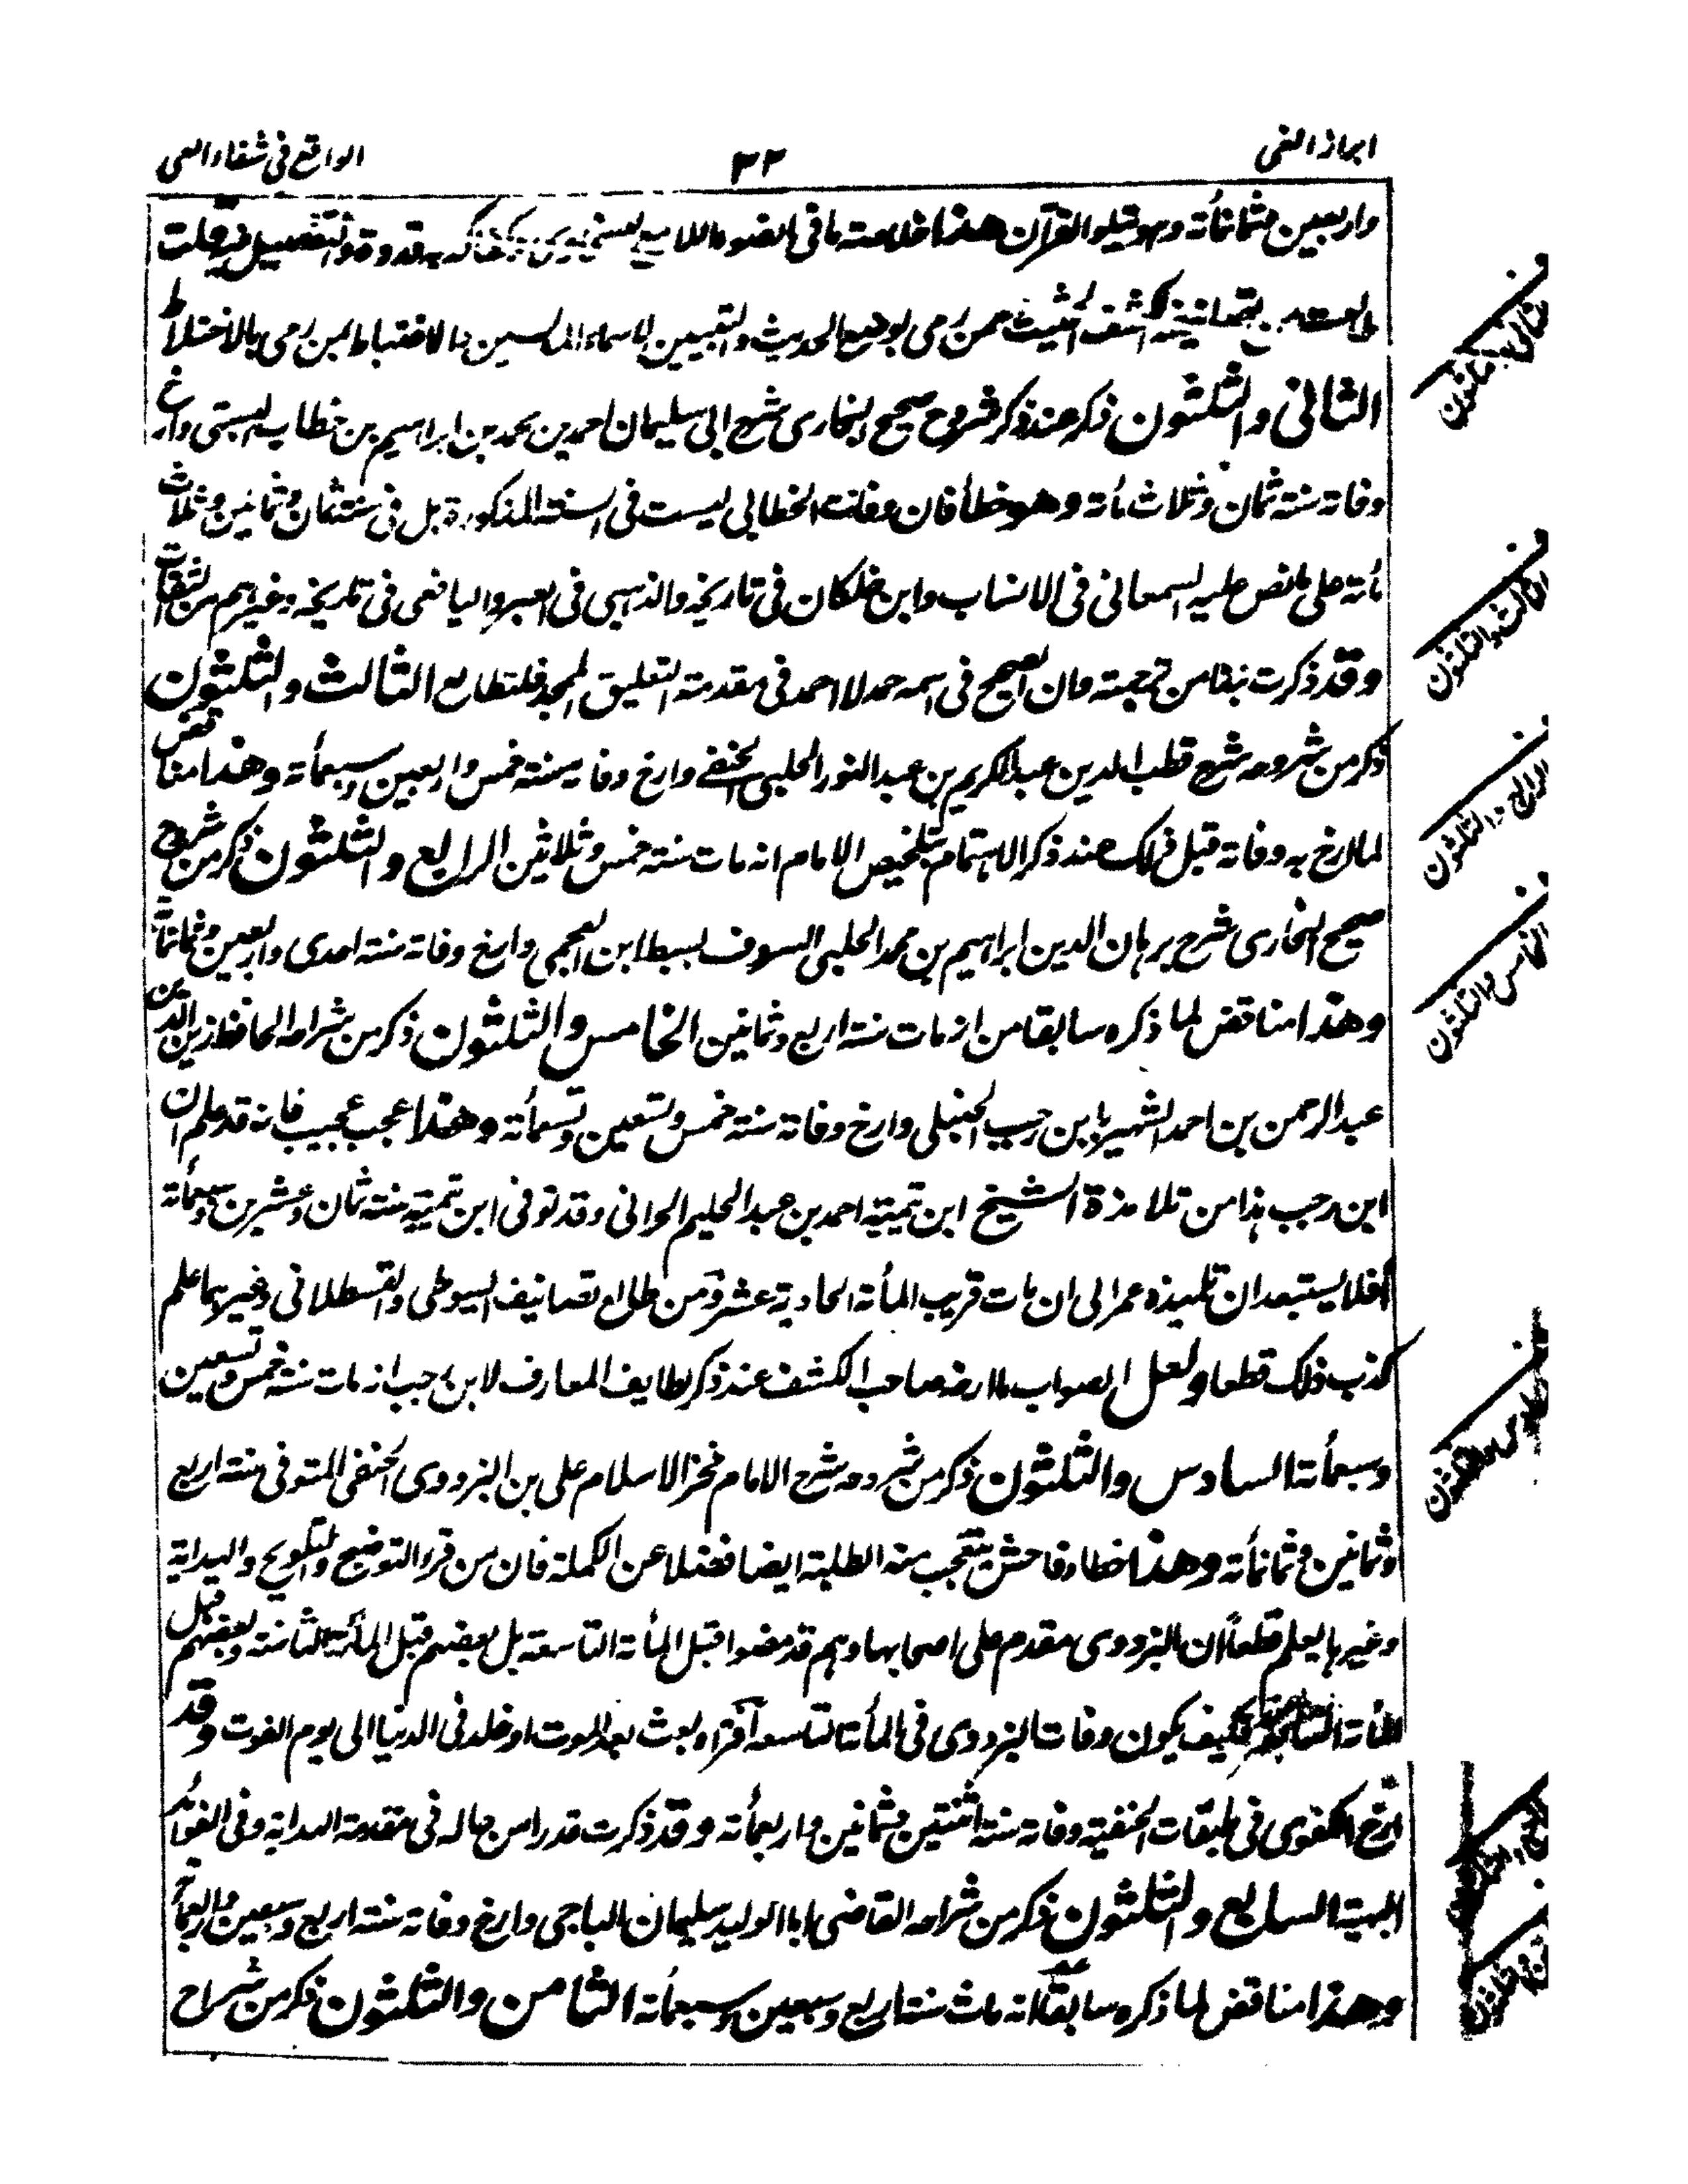 ابراز الغى ٣٢ الواقع فى شفاء العى
واربعين وثمانمأته وهو يتلو القرآن هذا خلاصته ما فى الضوء اللامع قدوة والتفصيل فيه قلت
طالعت من تصانيفه الكشف الحثيث عمن رمى بوضع الحديث والتبيين لاسماء المدلسين والاغتباط بمن رمى بالاختلاط
الثانى والثلثون ذكر عند ذكر شروح صحيح البخارى شرح ابى سليمان احمد بن محمد بن ابراهيم بن خطاب البستى وارخ
وفاته سنته ثمان وثلاث مأته وهو خطأ فان وفات الخطابى ليست فى السنته المذكورة بل فى سنته ثمان وثمانين وثلاث
مأته على ما نص عليه السمعانى فى الانساب وابن خلكان فى تاريخه والذهبى فى العبر واليافعى فى تاريخه وغيرهم من الثقات
وقد ذكرت نبذا من ترجمته وان الصحيح فى اسمه حمد لا احمد فى مقدمته التعليق الممجد فلتطالع الثالث والثلثون
ذكر من شروحه شرح قطب الدين عبد الكريم بن عبد النور الحلبى الحنفے وارخ وفاته سنته خمس واربعين وسبعمأته وهذا مناقض
لما ارخ به وفاته قبل ذلك عند ذكر الاهتمام بتلخيص الامام انه مات سنته خمس وثلاثين الرابع والثلثون ذكر من شروح
صحيح البخارى شرح برهان الدين ابراهيم بن محمد الحلبى المعروف بسبط ابن العجمى وارخ وفاته سنته احدى واربعين وثمانمأته
وهذا مناقض لما ذكره سابقا من انه مات سنته اربع وثمانين الخامس والثلثون ذكر من شراحه الحافظ زين الدين
عبد الرحمن بن احمد الشهير بابن رجب الحنبلى وارخ وفاته سنته خمس وتسعين وتسعمأته وهذا عجب عجيب فانه قد علم ان
ابن رجب هذا من تلامذة الشيخ ابن تيمية احمد بن عبد الحليم الحرانى وقد توفى ابن تيمية سنته ثمان وعشرين وسبعمأته
أفلا يستبعد ان تلميذه عمر الى ان مات قريب المأته الحادية عشر ومن طالع تصانيف السيوطى والقسطلانى وغيرهما علم
كذب ذلك قطعا ولعل الصواب ما ارخه صاحب الكشف عند ذكر لطايف المعارف لابن رجب انه مات سنته خمس وتسعين
وسبعمأته السادس والثلثون ذكر من شروحه شرح الامام فخر الاسلام على بن البزدوى الحنفى المتوفى سنته اربع
وثمانين وثمانمأته وهذا خطاء فاحش يتعجب منه الطلبة ايضا فضلا عن الكملة فان من قرء التوضيح والتلويح والهداية
وغيرها يعلم قطعاً ان البزدوى مقدم على اصحابها وهم قد مضوا قبل المأته التاسعته بل بعضهم قبل المأته الثامنته وبعضهم قبل
المأته فكيف يكون وفات البزدوى فى المأته التاسعه أفتراه بعث بعد الموت او خلد فى الدنيا الى يوم الفوت وقد
ارخ الكفوى فى طبقات الحنفية وفاته سنته اثنتين وثمانين واربعمأته وقد ذكرت قدرا من حاله فى مقدمة الهداية وفى الفوائد
البهية السابع والثلثون ذكر من شراحه القاضى ابا الوليد سليمان الباجى وارخ وفاته سنته اربع وسبعين واربعمأته
وهذا مناقض لما ذكره سابقا انه مات سنته اربع وسبعين وسبعمأته الثامن والثلثون ذكر من شراح
الثالث والثلثون
الرابع والثلثون
الخامس والثلثون